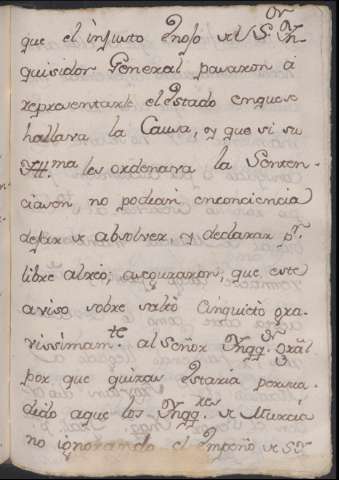 que el injusto Enojo del S.ᵒʳ Yn-
quisidor General pasaron à
representarle el Estado enque se
hallava la Causa, y que si su
Yll.ᵐᵃ les ordenava la Senten-
ciasen no podian enconciencia
dejar de absolver, y declarar p.ʳ
libre alreo; aseguraron, que este
aviso sobre saltò è inquietò gra-
vissimam.ᵗᵉ al Señor Ynqq.ᵒʳ Gr̃al
por que quizas estaria persua-
dido aque los Ynqq.ʳᵉˢ de Murcia
no ignorando el Empeño de S.